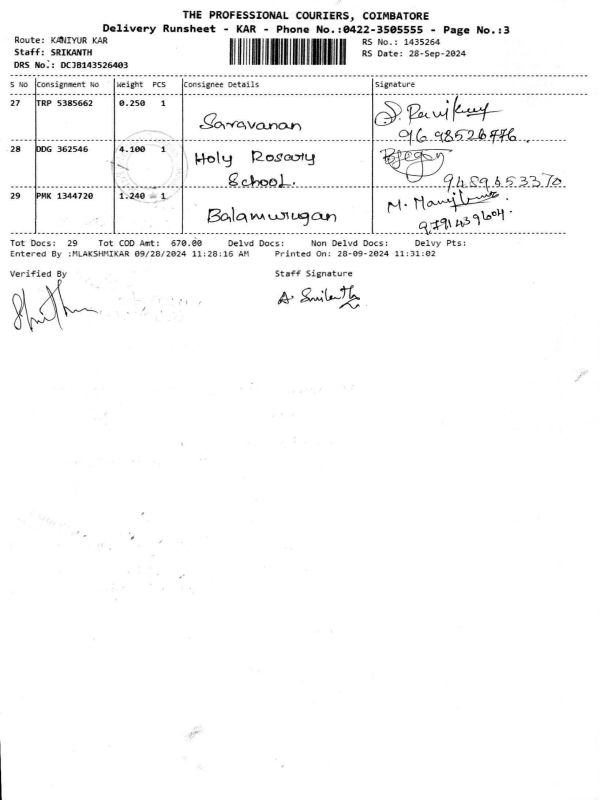 THE PROFESSIONAL COURIERS, COIMBATORE
Delivery Runsheet - KAR - Phone No.:0422-3505555 - Page No.:3
Route: KANIYUR KAR
RS No.: 1435264
Staff: SRIKANTH
RS Date: 28-Sep-2024
DRS No.: DCJB143526403
S No Consignment No Weight PCS Consignee Details Signature
27 TRP 5385662 0.250 1 Saravanan
9698526776.
28 DDG 362546 4.100 1 Holy Rosary
School.
9489653370
29 PMK 1344720 1.240 1 Balamurugan
9791439604.
Tot Docs: 29 Tot COD Amt: 670.00 Delvd Docs: Non Delvd Docs: Delvy Pts:
Entered By :MLAKSHMIKAR 09/28/2024 11:28:16 AM Printed On: 28-09-2024 11:31:02
Verified By Staff Signature